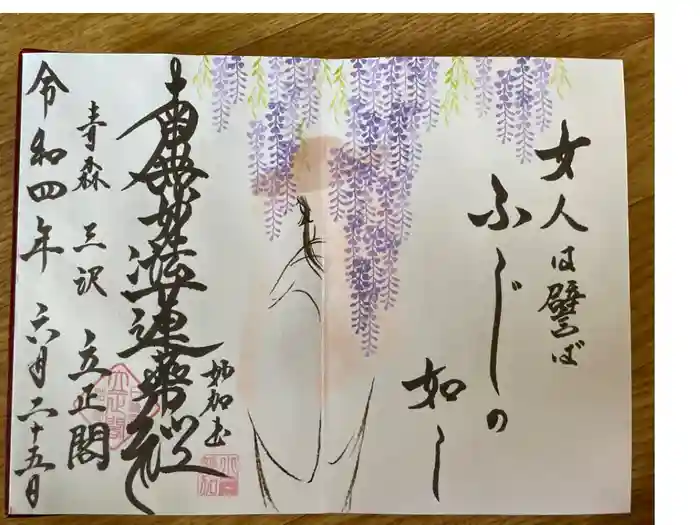 女人は譬ば
ふじの
如し
妙加書
南無妙法蓮華経
立正閣
青森 三沢 立正閣
令和四年 六月二十五日